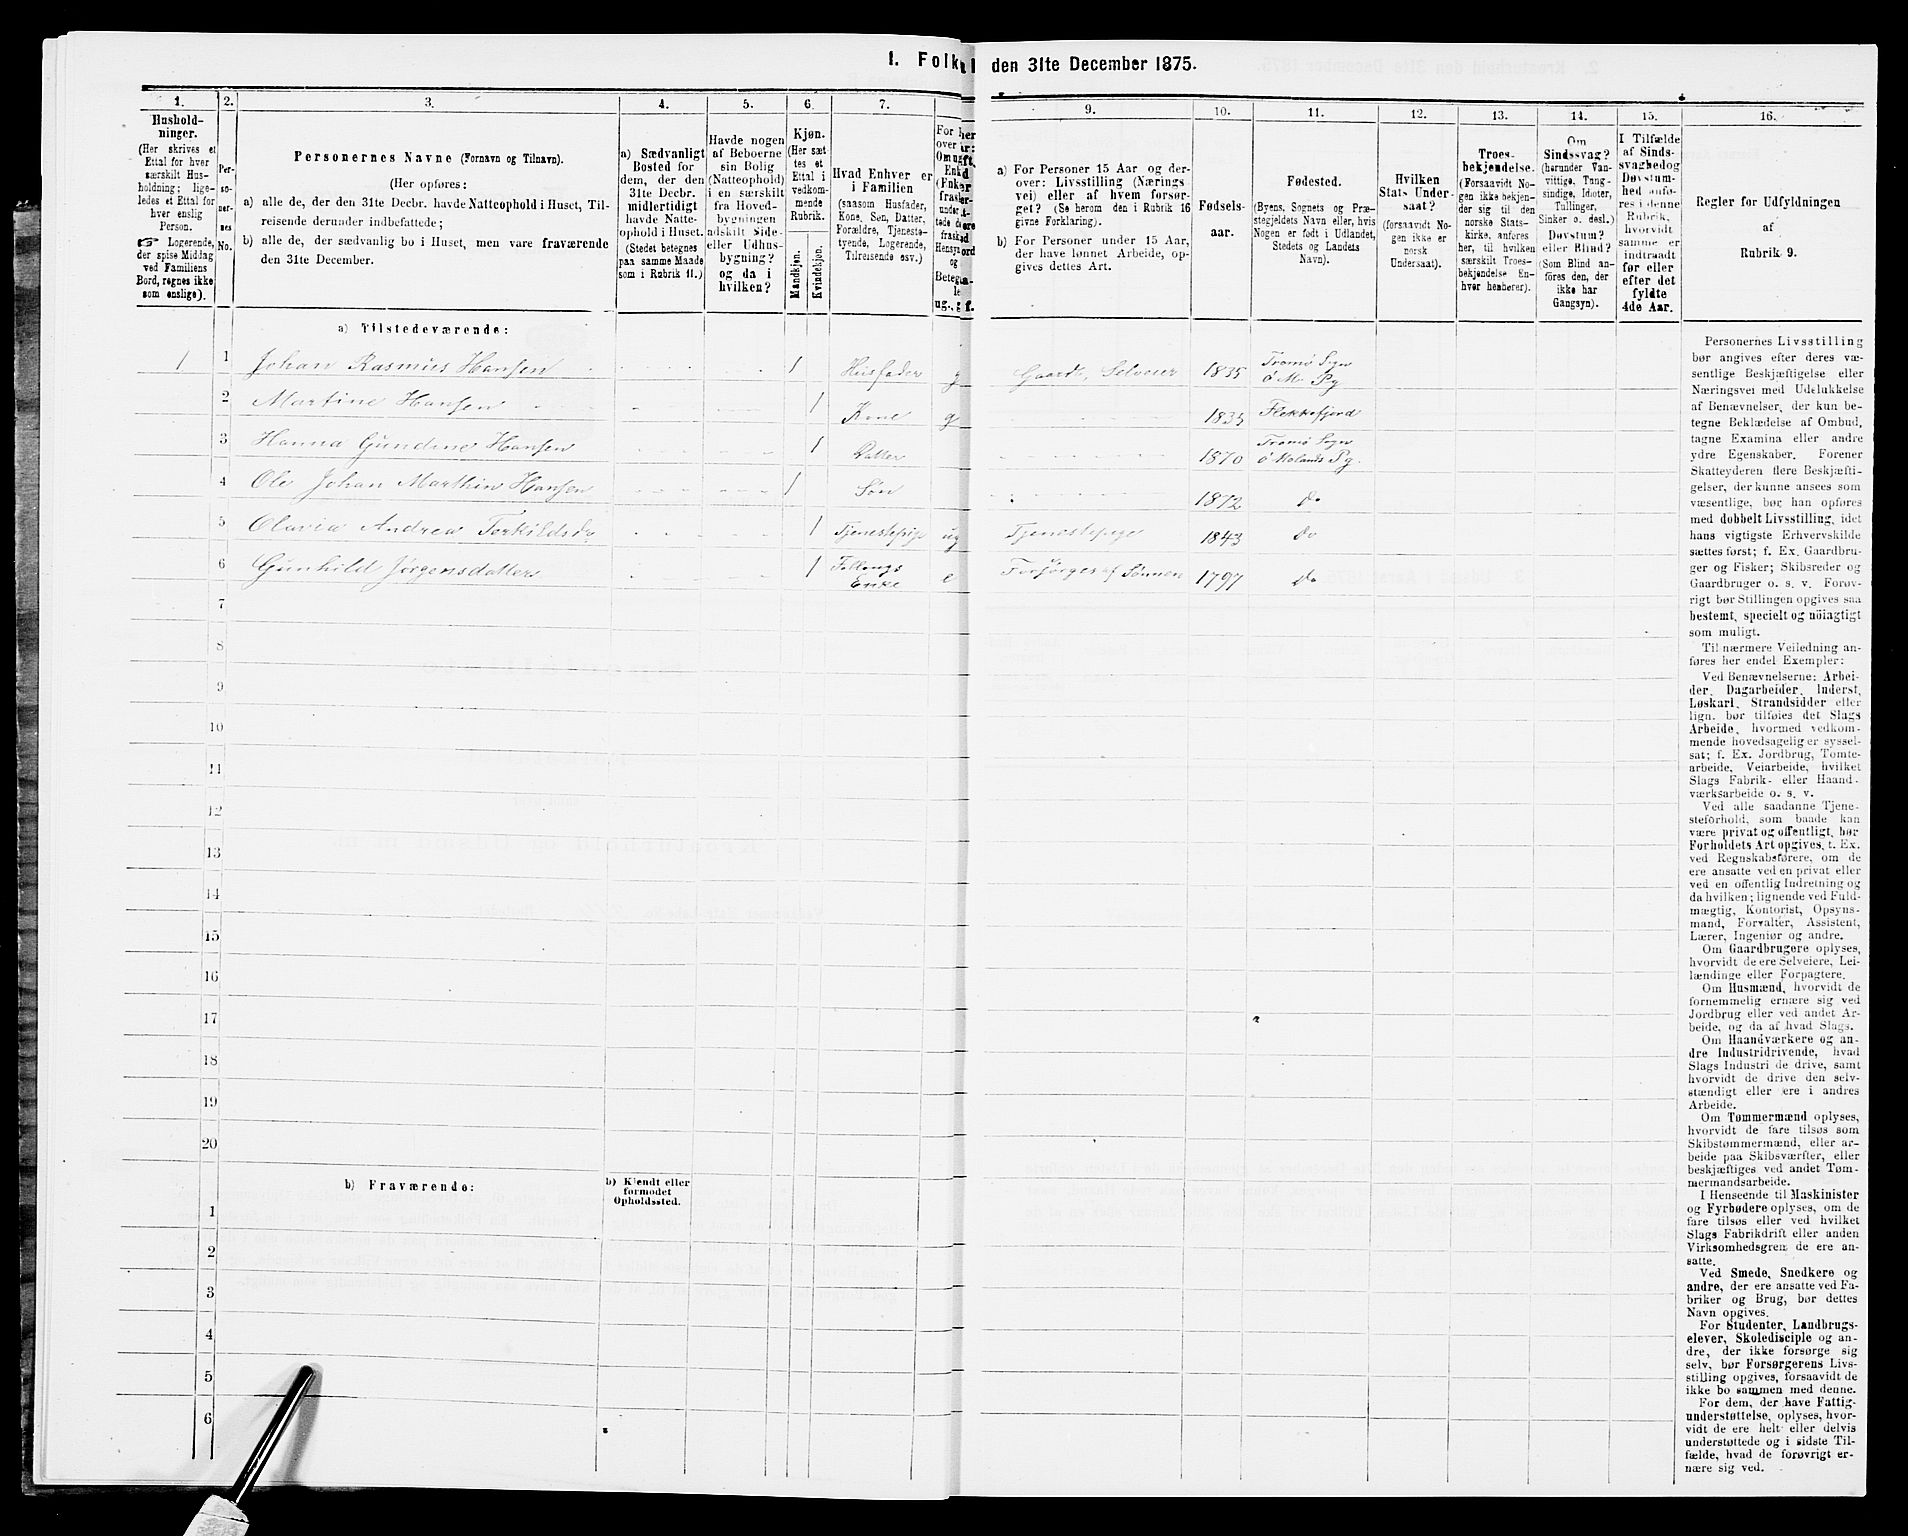 1. Folk
den 31te December 1875.
1.
2.
3.
4.
5.
6.
7.
9.
10.
11.
12.
13.
14.
15.
16.
Hushold-
ninger.
(Her skrives et
Ettal for hver
særskilt Hus-
holdning; lige-
ledes et Ettal for
hver enslig
Person.
☞ Logerende,
der spise Middag
ved Familiens
Bord, regnes ikke
som enslige).
Per-
so-
ner-
nes
No.
Personernes Navne (Fornavn og Tilnavn).
(Her opføres:
a) alle de, der den 31te Decbr. havde Natteophold i Huset, Til-
reisende derunder indbefattede;
b) alle de, der sædvanlig bo i Huset, men vare fraværende
den 31te December.
a) Sædvanligt
Bosted for
dem, der den
31te Decbr.
midlertidigt
havde Natte-
ophold i Huset.
(Stedet betegnes
paa samme Maade
som i Rubrik 11.)
Havde nogen
af Beboerne
sin Bolig
(Natteophold)
i en særskilt
fra Hoved-
bygningen
adskilt Side-
eller Udhus-
bygning?
og da i
hvilken?
Kjøn.
(Her sæt
tes et
Ettal i
vedkom-
mende
Rubrik.
Mandkjøn.
Kvindekjøn.
Hvad Enhver er
i Familien
(saasom Husfader,
Kone, Søn, Datter,
Forældre, Tjeneste-
tyende, Logerende,
Tilreisende osv.)
a) For Personer 15 Aar og der-
over: Livsstilling (Nærings
vei) eller af hvem forsør-
get? (Se herom den i Rubrik 16
givne Forklaring).
b) For Personer under 15 Aar,
der have lønnet Arbeide, op-
gives dettes Art.
Fødsels-
aar.
Fødested.
(Byens, Sognets og Præ-
stegjeldets Navn eller, hvis
Nogen er født i Udlandet,
Stedets og Landets
Navn).
Hvilken
Stats Under-
saat?
(forsaavidt No-
gen ikke er
norsk
Undersaat).
Troes-
bekjendelse.
(Forsaavidt No-
gen ikke bekjen-
der sig til den
norske Stats-
kirke, anføres
her, til hvilken
særskilt Troes-
bekjendelse En-
hver henhører).
Om
Sindssvag?
(herunder Van-
vittige, Tung-
sindige, Idioter,
Tullinger,
Sinker o. desl.)
Døvstum?
eller Blind?
(Som Blind an-
føres den, der
ikke har
Gangsyn).
I Tilfælde
af Sinds-
svaghed og
Døvstum-
hed anfø-
res i denne
Rubrik,
hvorvidt
samme er
indtraadt
før eller
efter det
fyldte
4de Aar.
Regler for Udfyldningen
af
Rubrik 9.
a) Tilstedeværende:
1 1 Johan Rasmus Hansen 1 Husfader g Gaardb, Selveier 1835 Tromø Sogn
Ø M. Pg
2 Martine Hansen 1 Kone g 1835 Flekkefjord
3 Hanna Gundine Hansen 1 Datter 1870 Tromø Sogn
Ø Molands Pg.
4 Ole Johan Marthin Hansen 1 Søn 1872 Do
5 Olavia Andrea Terkildsdr 1 Tjenestepige ug Tjenestepige 1843 Do
6 Gunhild Jørgensdatter 1 Enke e Forsørges af Sønnen 1797 Do
7
8
9
10
11
12
13
14
15
16
17
18
19
20
b) Fraværende:
b) Kjendt eller
formodet
Opholdssted.
1
2
3
4
5
6
Personernes Livsstilling
bør angives efter deres væ-
sentlige Beskjæftigelse eller
Næringsvei med Udelukkelse
af Benævnelser, der kun be-
tegne Beklædelse af Ombud,
tagne Examina eller andre
ydre Egenskaber. Forener
Skatteyderen flere Beskjæfti-
gelser, der kunne ansees som
væsentlige, bør han opføres
med dobbelt Livsstilling, idet
hans vigtigste Erhvervskilde
sættes først; f. Ex. Gaardbru-
ger og Fisker; Skibsreder og
Gaardbruger o. s. v. Forøv-
rigt bør Stillingen opgives saa
bestemt, specielt og nöiagtigt
som muligt.
Til nærmere Veiledning an-
føres her endel Exempler:
Ved Benævnelserne: Arbei-
der, Dagarbeider, Inderst,
Løskarl, Strandsidder eller
lign. bør tilføies det Slags
Arbeide, hvormed vedkom-
mende hovedsagelig er syssel-
sat; f. Ex. Jordbrug, Tomte-
arbeide, Veiarbeide, hvilket
Slags Fabrik- eller Haand-
værksarbeide o. s. v.
Ved alle saadanne Tjene-
steforhold, som baade kan
være privat og offentligt, bør
Forholdets Art opgives, f. Ex.
ved Regnskabsførere, om de
ere ansatte ved en privat eller
ved en offentlig Indretning og
da hvilken; lignende ved Fuld-
mægtig, Kontorist, Opsyns-
mand, Forvalter, Assistent,
Lærer, Ingeniør og andre.
Om Gaardbrugere oplyses,
hvorvidt de ere Selveiere, Lei-
lændinge eller Forpagtere.
Om Husmænd, hvorvidt de
fornemmelig ernære sig ved
Jordbrug eller ved andet Ar-
beide, og da af hvad Slags.
Om Haandværkere og an-
dre Industridrivende, hvad
Slags Industri de drive, samt
hvorvidt de drive den selv-
stændigt eller ere i andres
Arbeide.
Om Tømmermænd oplyses,
hvorvidt de fare tilsøs som
Skibstømmermænd, eller ar-
beide paa Skibsværfter, eller
beskjæftiges ved andet Tøm-
mermandsarbeide.
I Henseende til Maskinister
og Fyrbødere oplyses, om de
fare tilsøs eller ved hvilket
Slags Fabrikdrift eller anden
Virksomhedsgren de ere an-
satte.
Ved Smede, Snedkere og
andre, der ere ansatte ved Fa-
briker og Brug, bør dettes
Navn opgives.
For Studenter, Landbrugs-
elever, Skoledisciple og an-
dre, der ikke forsørge sig
selv, bør Forsørgerens Livs-
stilling opgives, forsaavidt de
ikke bo sammen med denne.
For dem, der have Fattig-
understøttelse, oplyses, hvor-
vidt de ere helt eller delvis
understøttede og i sidste Til-
fælde, hvad de forøvrigt er-
nære sig ved.